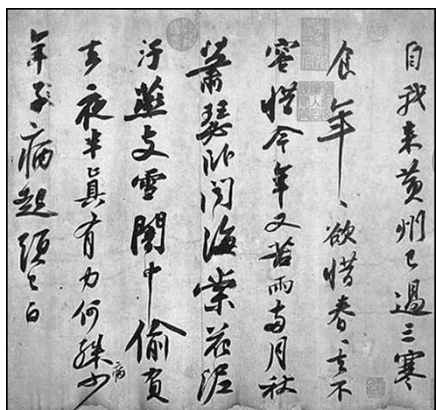 自我來黃州已過三寒
食年〻欲惜春〻去不
容惜今年又苦雨兩月秋
蕭瑟臥聞海棠花泥
汙燕支雪闇中偷負
去夜半真有力何殊少
病
年子病起頭已白